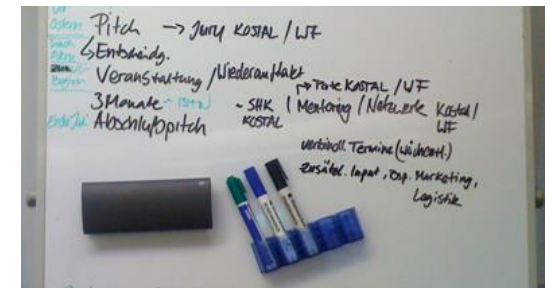 vor Ostern Pitch → Jury KOSTAL / WF
nach Ostern ↳ Entscheidg.
zum Beginn Veranstaltung / Wiederauftakt
→ Pate KOSTAL / WF
3 Monate ~ SHK KOSTAL | Mentoring / Netzwerk Kostal / WF
Ende Juli Abschlußpitch
verbindl. Termine (wöchentl.)
zusätzl. Input, Bsp. Marketing,
Logistik